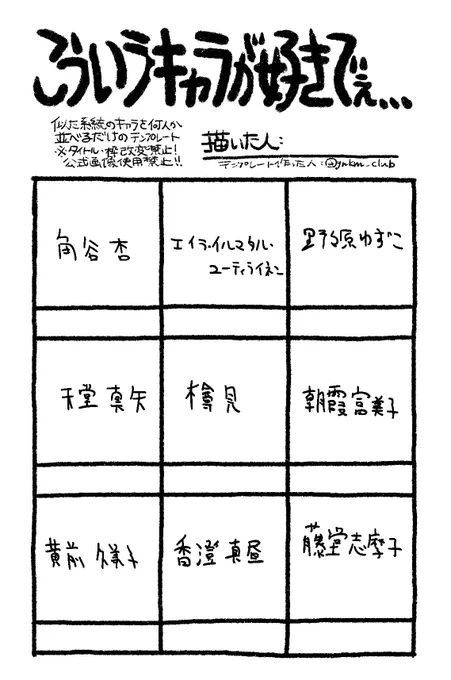 こういうキャラが好きでぇ...
似た系統のキャラを何人か
並べるだけのテンプレート
※タイトル・枠改変禁止!
公式画像使用禁止!!
描いた人:
テンプレート作った人:@ynkm_club
角谷杏
エイラ・イルマタル・
ユーティライネン
野々原ゆずこ
天堂真矢
樽見
朝霞富美子
黄前久美子
香澄真昼
藤堂志摩子